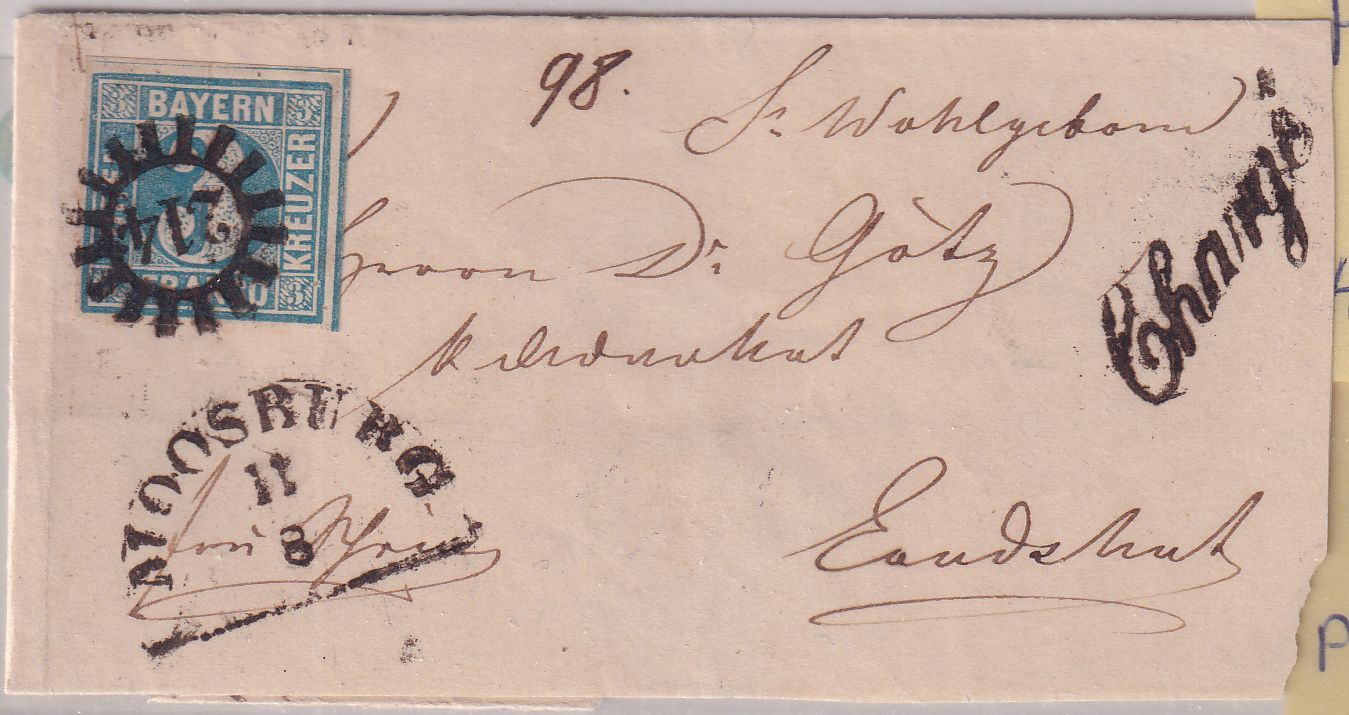 98.
BAYERN
KREUZER
FRANCO
3
3
3
214
Sr Wohlgeborn
Herrn Dr. Götz
k Advokat
Landshut
Chargé
MOOSBURG
11
8
frei
P